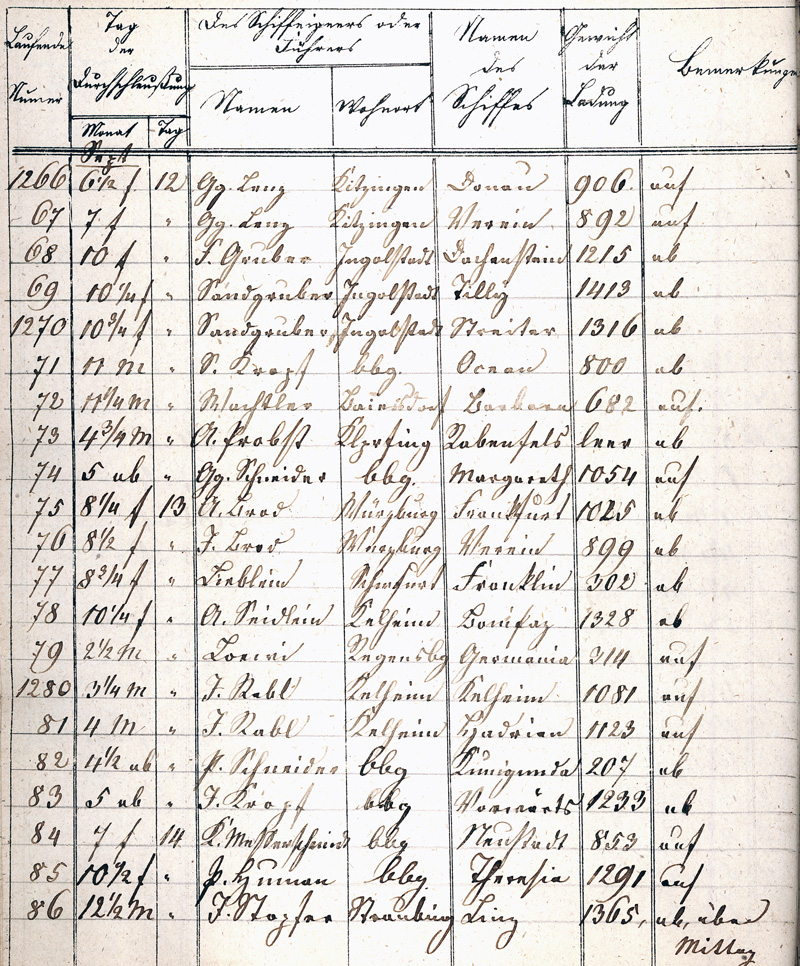 Laufende Numer
Tag der Durchschleußung
Des Schiffeigners oder Führers
Namen des Schiffes
Gewicht der Ladung
Bemerkungen
Monat Tag Namen Wohnort
Sept
1266 6 1/2 f 12 Gg. Lenz Kitzingen Donau 906 auf
67 7 f " Gg. Lenz Kitzingen Verein 892 auf
68 10 f " F. Gruber Ingolstadt Dachenstein 1215 ab
69 10 1/4 f " Sandgruber Ingolstadt Tilly 1413 ab
1270 10 3/4 f " Sandgruber Ingolstadt Streiter 1316 ab
71 11 M " S. Kropf bbg. Ocean 800 ab
72 11 3/4 M " Wachtler Baiersdorf Barbara 682 auf.
73 4 3/4 M " A. Probst Rabenfels leer ab
74 5 ab " Gg. Schneider bbg. Margareth 1054 auf
75 8 1/4 f 13 A. Brod Würzburg Frankfurt 1025 ab
76 8 1/2 f " J. Brod Würzburg Verein 899 ab
77 8 3/4 f " Lieblein Schwfurt Franklin 302 ab
78 10 1/4 f " A. Seidlein Kelheim Bonifaz 1328 ab
79 2 1/2 M " Loewi Regensbg Germania 314 auf
1280 3 1/4 M " J. Rabl Kelheim Kelheim 1081 auf
81 4 M " J. Rabl Kelheim Hadrian 1123 auf
82 4 1/2 ab " P. Schneider bbg Kunigunda 207 ab
83 5 ab " J. Kropf bbg Vorwärts 1233 ab
84 7 f 14 K. Messerschmidt bbg Neustadt 853 auf
85 10 1/2 f " P. Human bbg Theresia 1291 auf
86 12 1/2 M " J. Stopfer Straubing Linz 1365, ab, über
Mittag